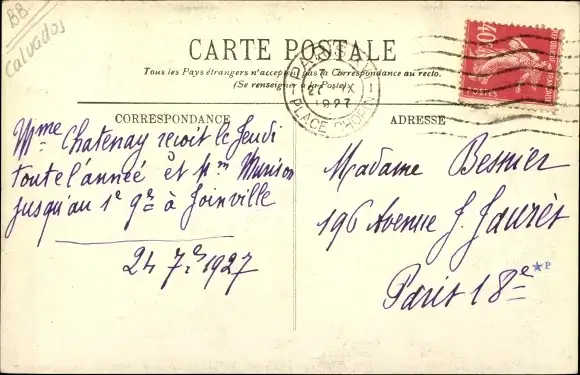 BB
Calvados
CARTE POSTALE
Tous les Pays étrangers n'acceptent pas la Correspondance au recto.
(Se renseigner à la Poste)
PARIS
7
27 IX
1927
PLACE CHOPIN
40
POSTES
CORRESPONDANCE
Mme Chatenay reçoit le Jeudi
toute l'année et Mme
jusqu'au 1e 9re à Joinville
24 7e 1927
ADRESSE
Madame Besnier
196 Avenue J. Jaurès
Paris 18e
★P